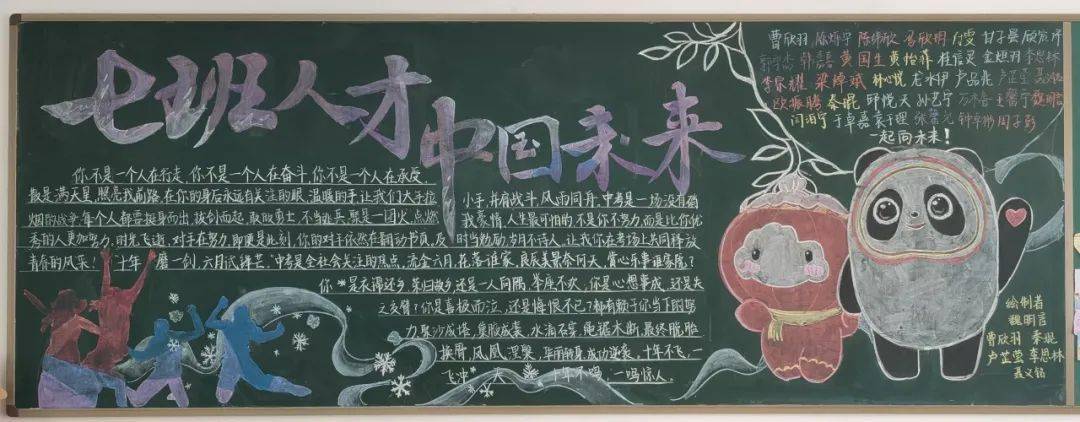 七班人才
中国未来
你不是一个人在行走,你不是一个人在奋斗,你不是一个人在承受
散是满天星,照亮我前路,在你的身后永远有关注的眼,温暖的手,让我们大手拉
小手,并肩战斗,风雨同舟,中考是一场没有硝
烟的战争,每个人都要挺身而出,拔剑而起,敢取勇士,不当逃兵,聚是一团火,点燃
我豪情,人生最可怕的不是你不努力,而是比你优
秀的人更加努力,时光飞逝,对手在努力,即便是此刻,你的对手依然在翻动书页,及
时当勉励,岁月不待人,让我你在考场上共同释放
青春的风采!十年磨一剑,六月试锋芒,中考是全社会关注的焦点,流金六月,花落谁家,良辰美景奈何天,赏心乐事谁家院?
你是衣锦还乡,荣归故乡,还是一人向隅,举座不欢,你是心想事成,还是失
之交臂?你是喜极而泣,还是悔恨不已?都有赖于你当下的努
力,聚沙成塔,集腋成裘,水滴石穿,绳锯木断,最终脱胎
换骨,凤凰涅槃,华丽转身,成功逆袭,十年不飞,一
飞冲天,十年不鸣,一鸣惊人。
曹欣羽 陈烁宁 陈炜欣 冯欣玥 付雯 甘子晏
韩喆 黄国生 黄怡菲 桂信灵 金煜羽 李思林
李保耀 梁焯斌 林心悦 龙水伊 卢品兆 卢芷莹 聂义铭
欧振腾 秦琨 邱悦天 孙艺宁 王馨宁 魏明言
闫泊宁 于卓嘉 袁于理 钟卓彬 周子彭
一起向未来!
绘制者
魏明言
曹欣羽 秦琨
卢芷莹 李思林
聂义铭